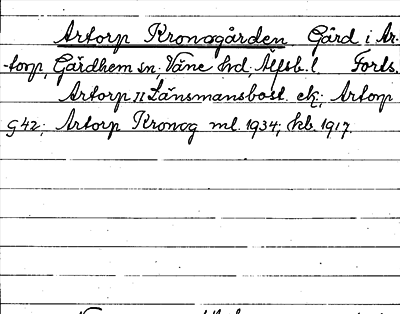 Artorp Kronogården Gård i Ar-
-torp, Gärdhem sn, Väne hd, Älfsb. l. Forts.
Artorp II Länsmansbost. ek; Artorp
G42; Artorp Kronog ml. 1934; kb. 1917.